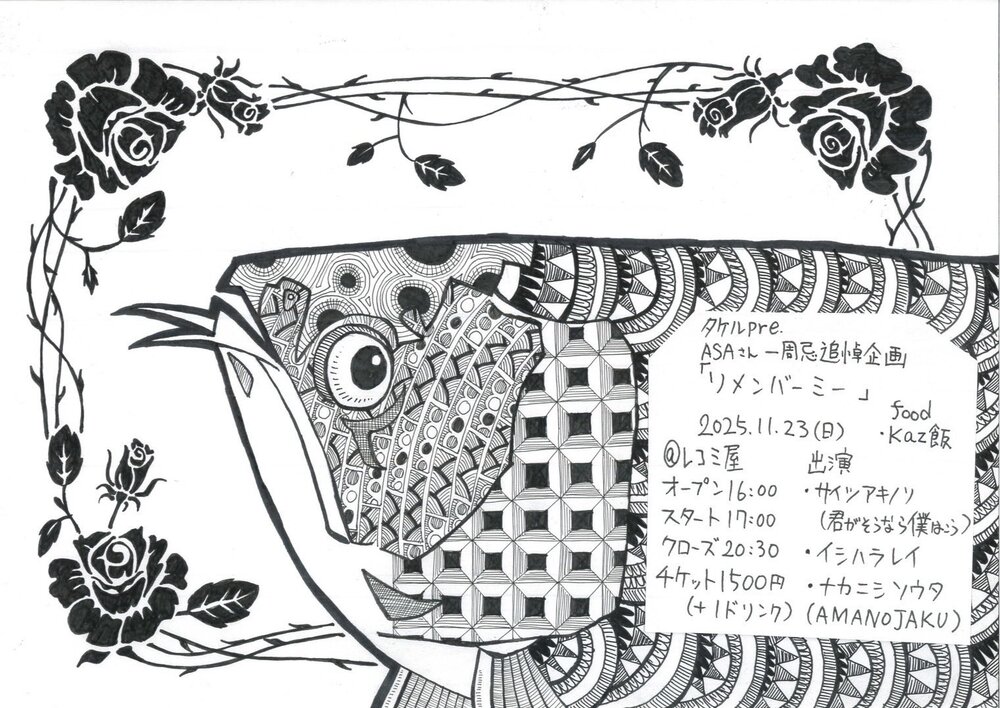 タケルpre.
ASAさん一周忌追悼企画
「リメンバーミー」
2025.11.23(日)
food
・Kaz飯
@レコミ屋
オープン16:00
スタート17:00
クローズ20:30
チケット1500円
(+1ドリンク)
出演
・サイツアキノリ
(君がそうなら僕はこう)
・イシハラレイ
・ナカニシソウタ
(AMANOJAKU)